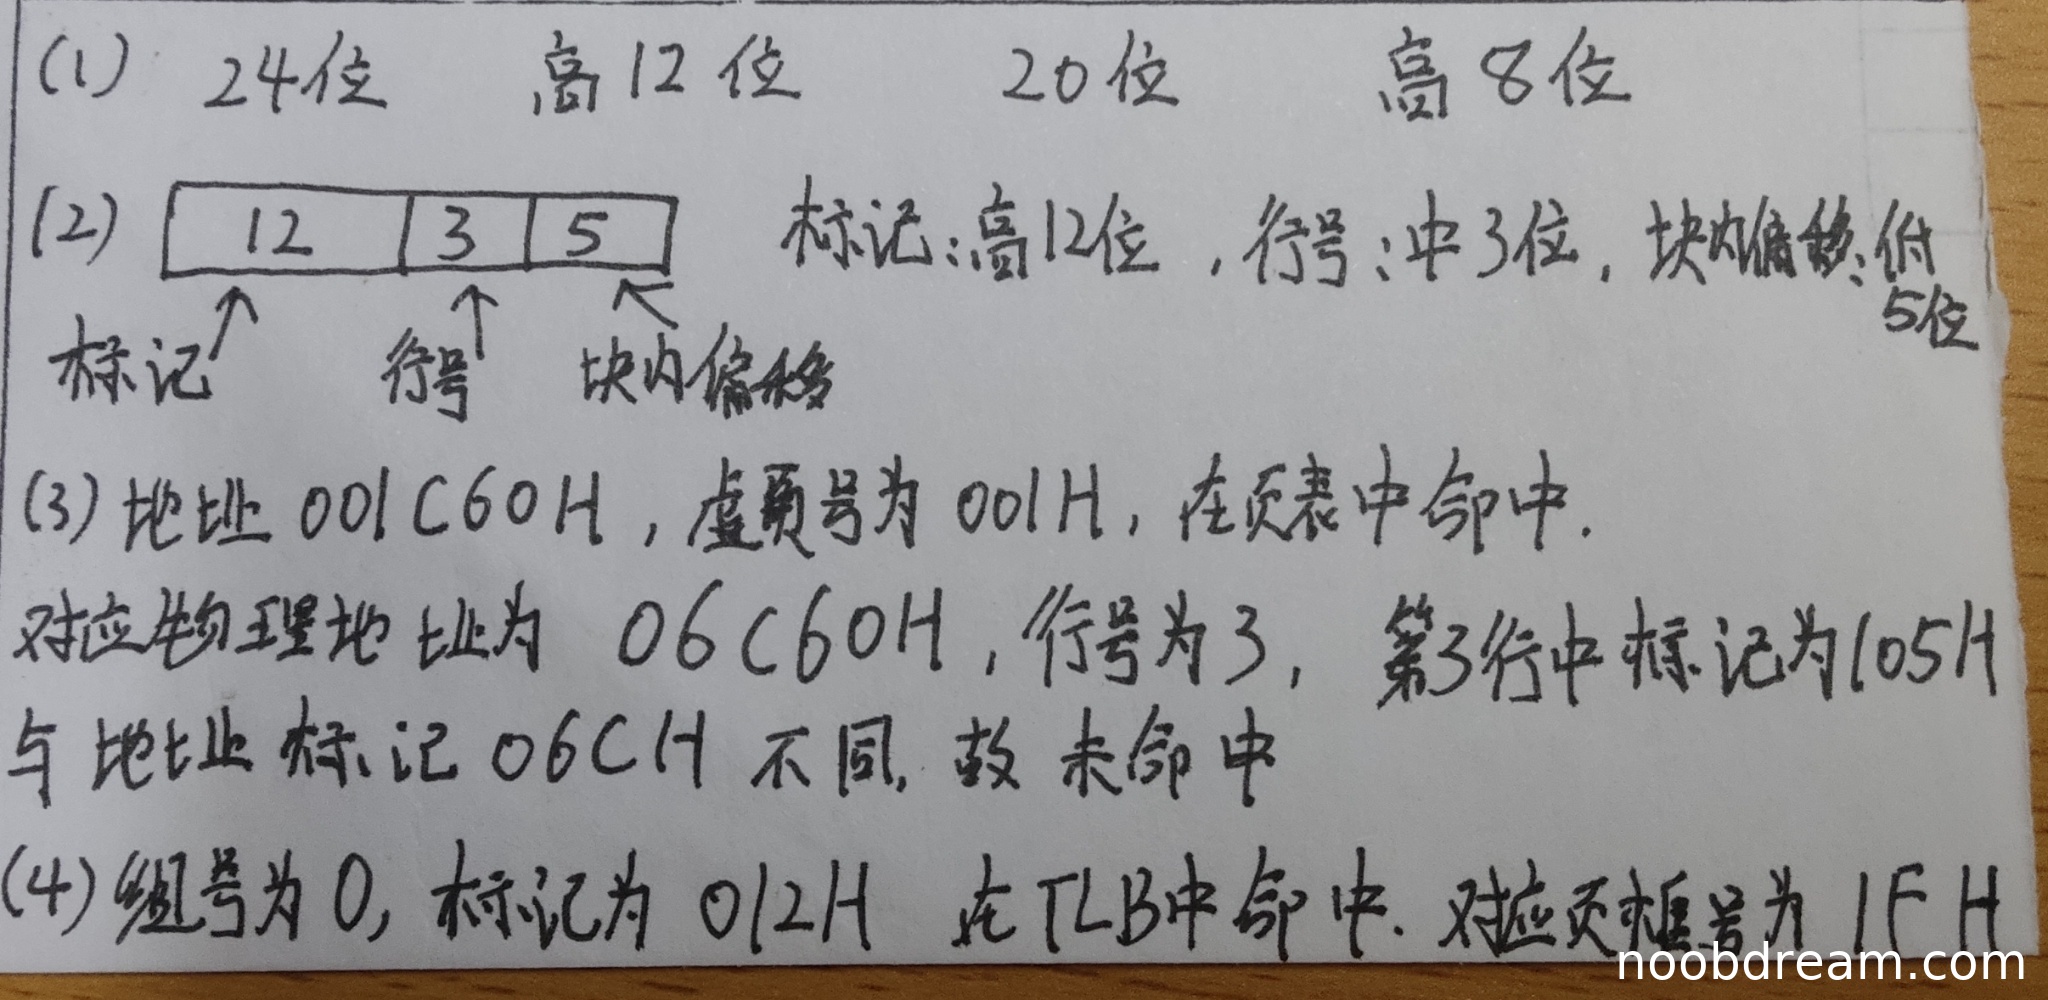 (1) 24位 高12位 20位 高8位
(2) 12 3 5 标记:高12位,行号:中3位,块内偏移:低
5位
标记 行号 块内偏移
(3)地址001C60H,虚页号为001H,在页表中命中.
对应物理地址为 06C60H,行号为3, 第3行中标记为105H
与地址标记06CH不同,故未命中
(4)组号为0,标记为012H 在TLB中命中.对应页框号为1FH
noobdream.com